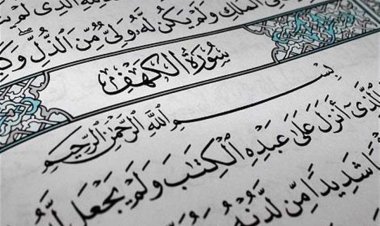 الملك ولم يكن لَّهُ وَلِىٌّ مِّنَ الذُّلِّ
سُورَةُ الكَهْفِ
بِسْمِ اللَّهِ الرَّحْمَٰنِ الرَّحِيمِ
أَنزَلَ عَلَىٰ عَبْدِهِ الْكِتَٰبَ وَلَمْ يَجْعَل
شَدِيدًا مِّن لَّدُنْهُ